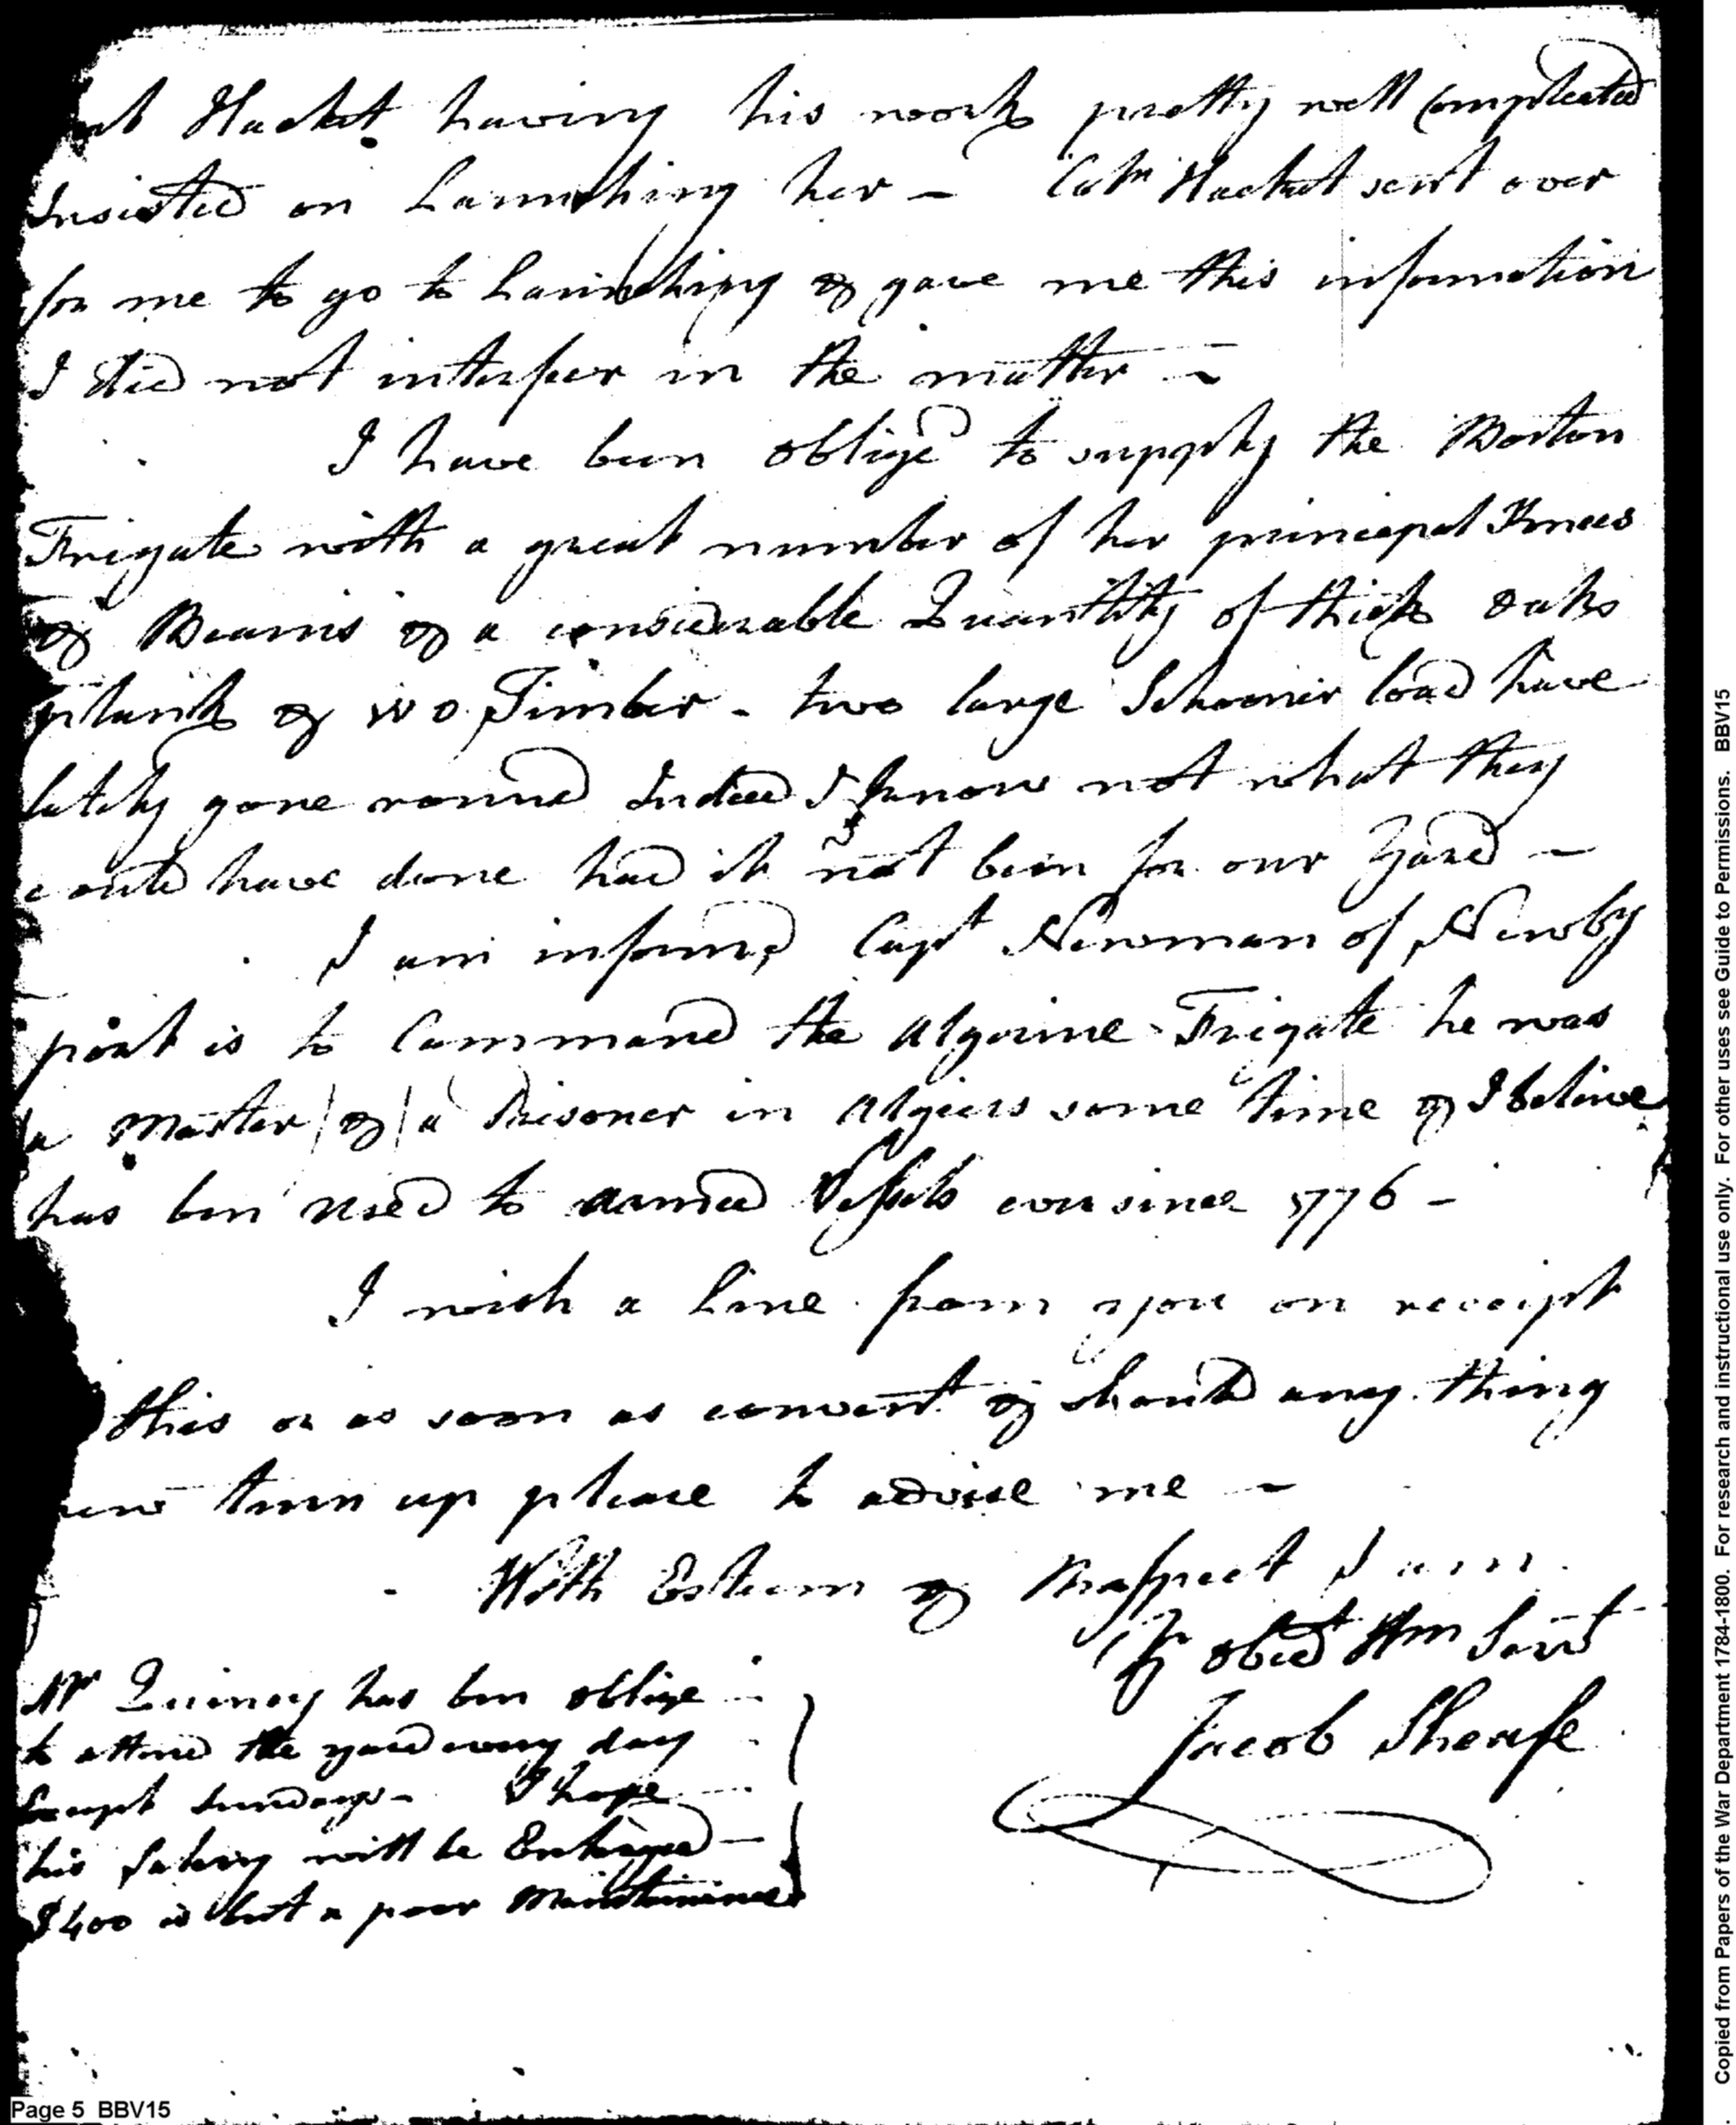 Hacket having his work pretty well Compleated
Insisted on Launching her – Coln Hacket sent over
for me to go to Launching & gave me this information
I did not interfeer in the matter –
I have been obliged to supply the Boston
Frigate with a great number of her principal Knees
& Beams & a considerable Quantity of thick oake
plank & W O Timber – two large Schooner load have
lately gone round Indeed I know not what they
could have done had it not been for our Yard –
I am informd Capt Newman of Newby
port is to Command the Algerine Frigate he was
a Master / & / a Prisoner in Algiers some time & I believe
has ben used to armed Vessels ever since 1776 –
I wish a Line from you on receipt
this or as soon as convent & should any thing
new turn up please to advise me –
With Esteem & Respect I am
Yr obedt Hm Servt
Jacob Sheafe
Mr Quincy has ben oblige
to attend the yard every day
Except Sundays – I hope
his Salery will be Enlarged –
$400 is but a poor Maintainance
Page 5 BBV15
Copied from Papers of the War Department 1784-1800. For research and instructional use only. For other uses see Guide to Permissions. BBV15